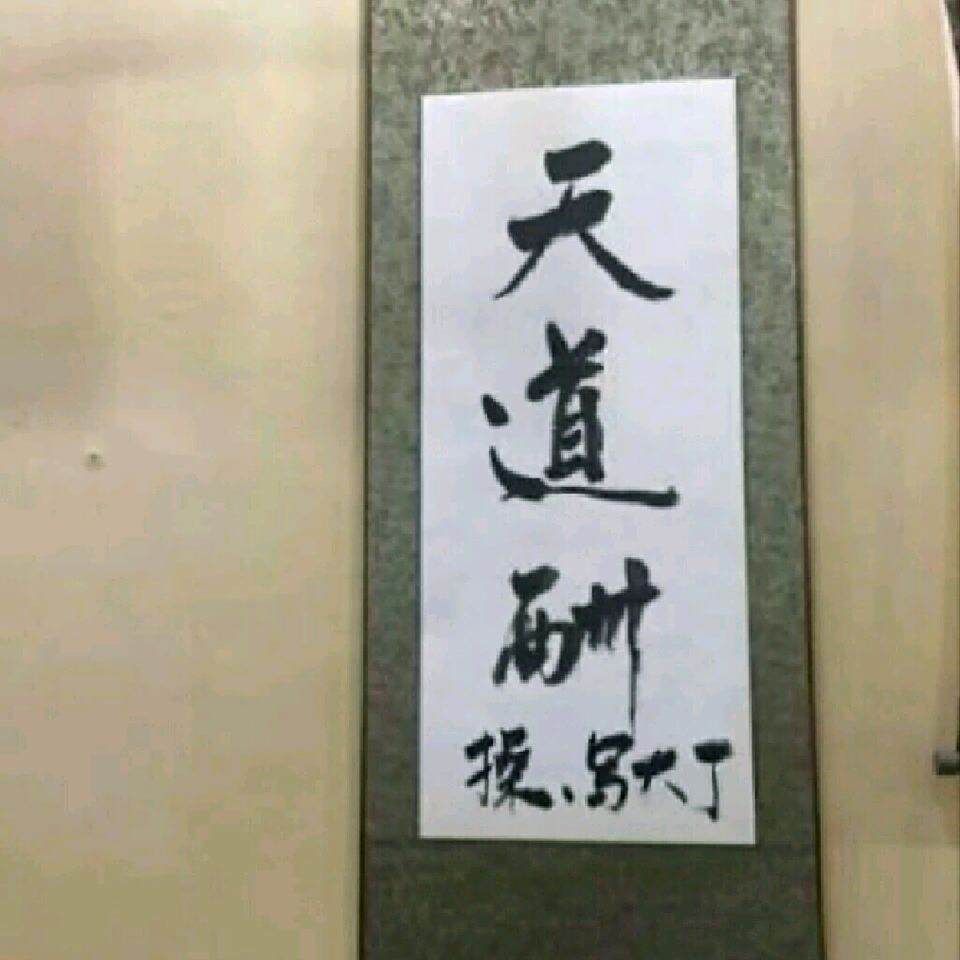 天道酬
操、写大了